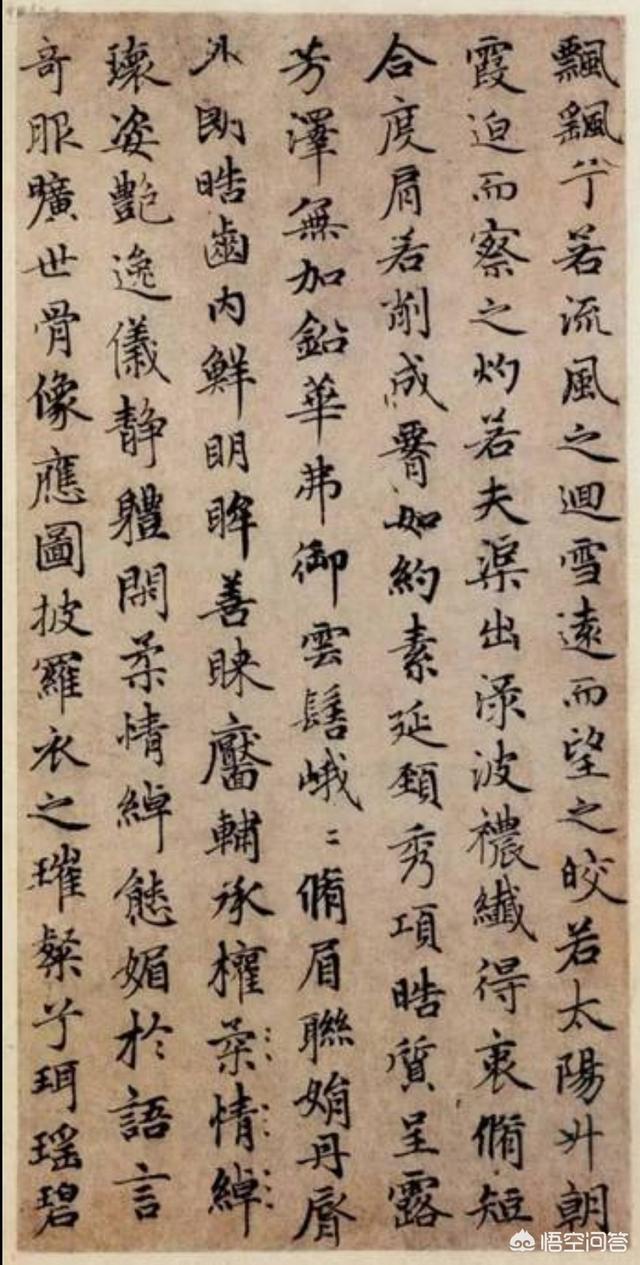 飄飖兮若流風之迴雪遠而望之皎若太陽升朝
霞迫而察之灼若夫渠出渌波襛纖得衷脩短
合度肩若削成䙅如約素延頸秀項皓質呈露
芳澤無加鉛華弗御雲髻峨〻脩眉聯娟丹脣
外朗皓齒內鮮明眸善睞靨輔承權柔情綽
瓌姿艷逸儀静體閑柔情綽態媚於語言
奇服曠世骨像應圖披羅衣之璀粲兮珥瑶碧
悟空问答